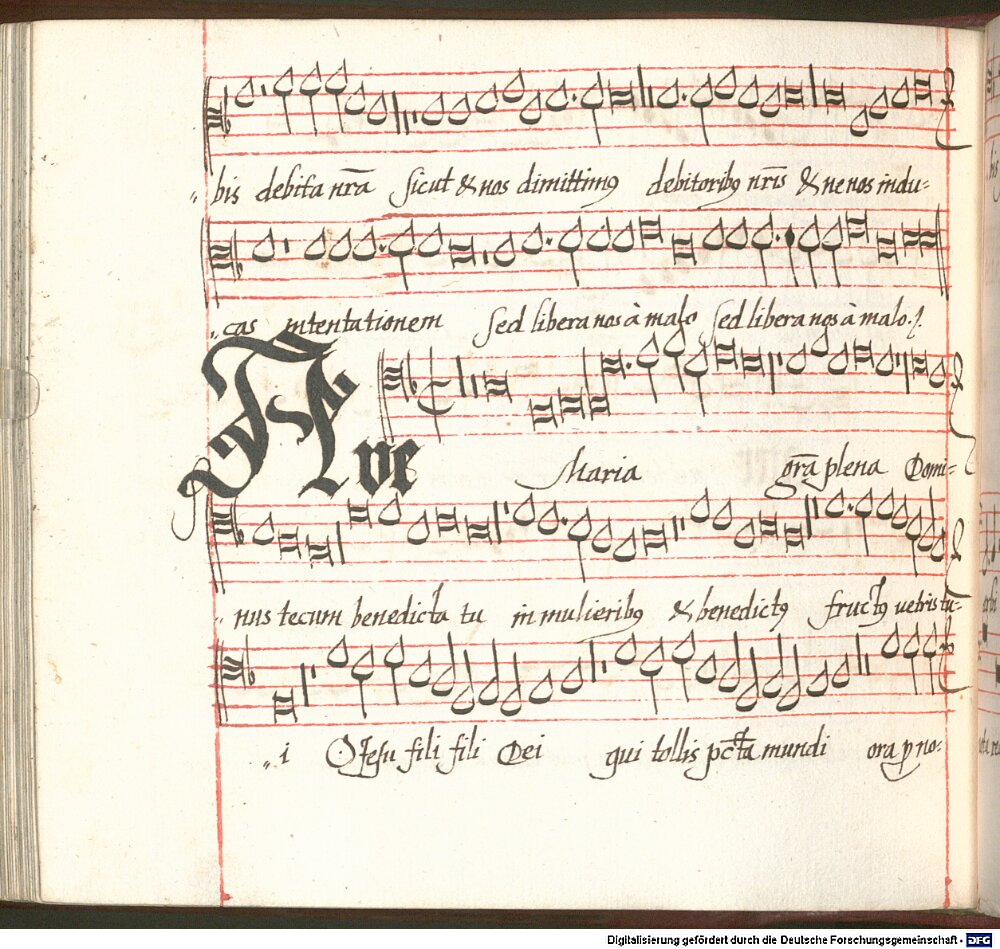 bis debita nr̃a sicut & nos dimittimꝰ debitoribꝰ nr̃is & ne nos indu-
cas intentationem sed libera nos à malo sed libera nos à malo.
Ave Maria gr̃a plena Domi-
nus tecum benedicta tu in mulieribꝰ & benedictꝰ fructꝰ uetris tu-
i O Iesu fili fili Dei qui tollis pc̃ta mundi ora ꝓ no-
Digitalisierung gefördert durch die Deutsche Forschungsgemeinschaft - DFG